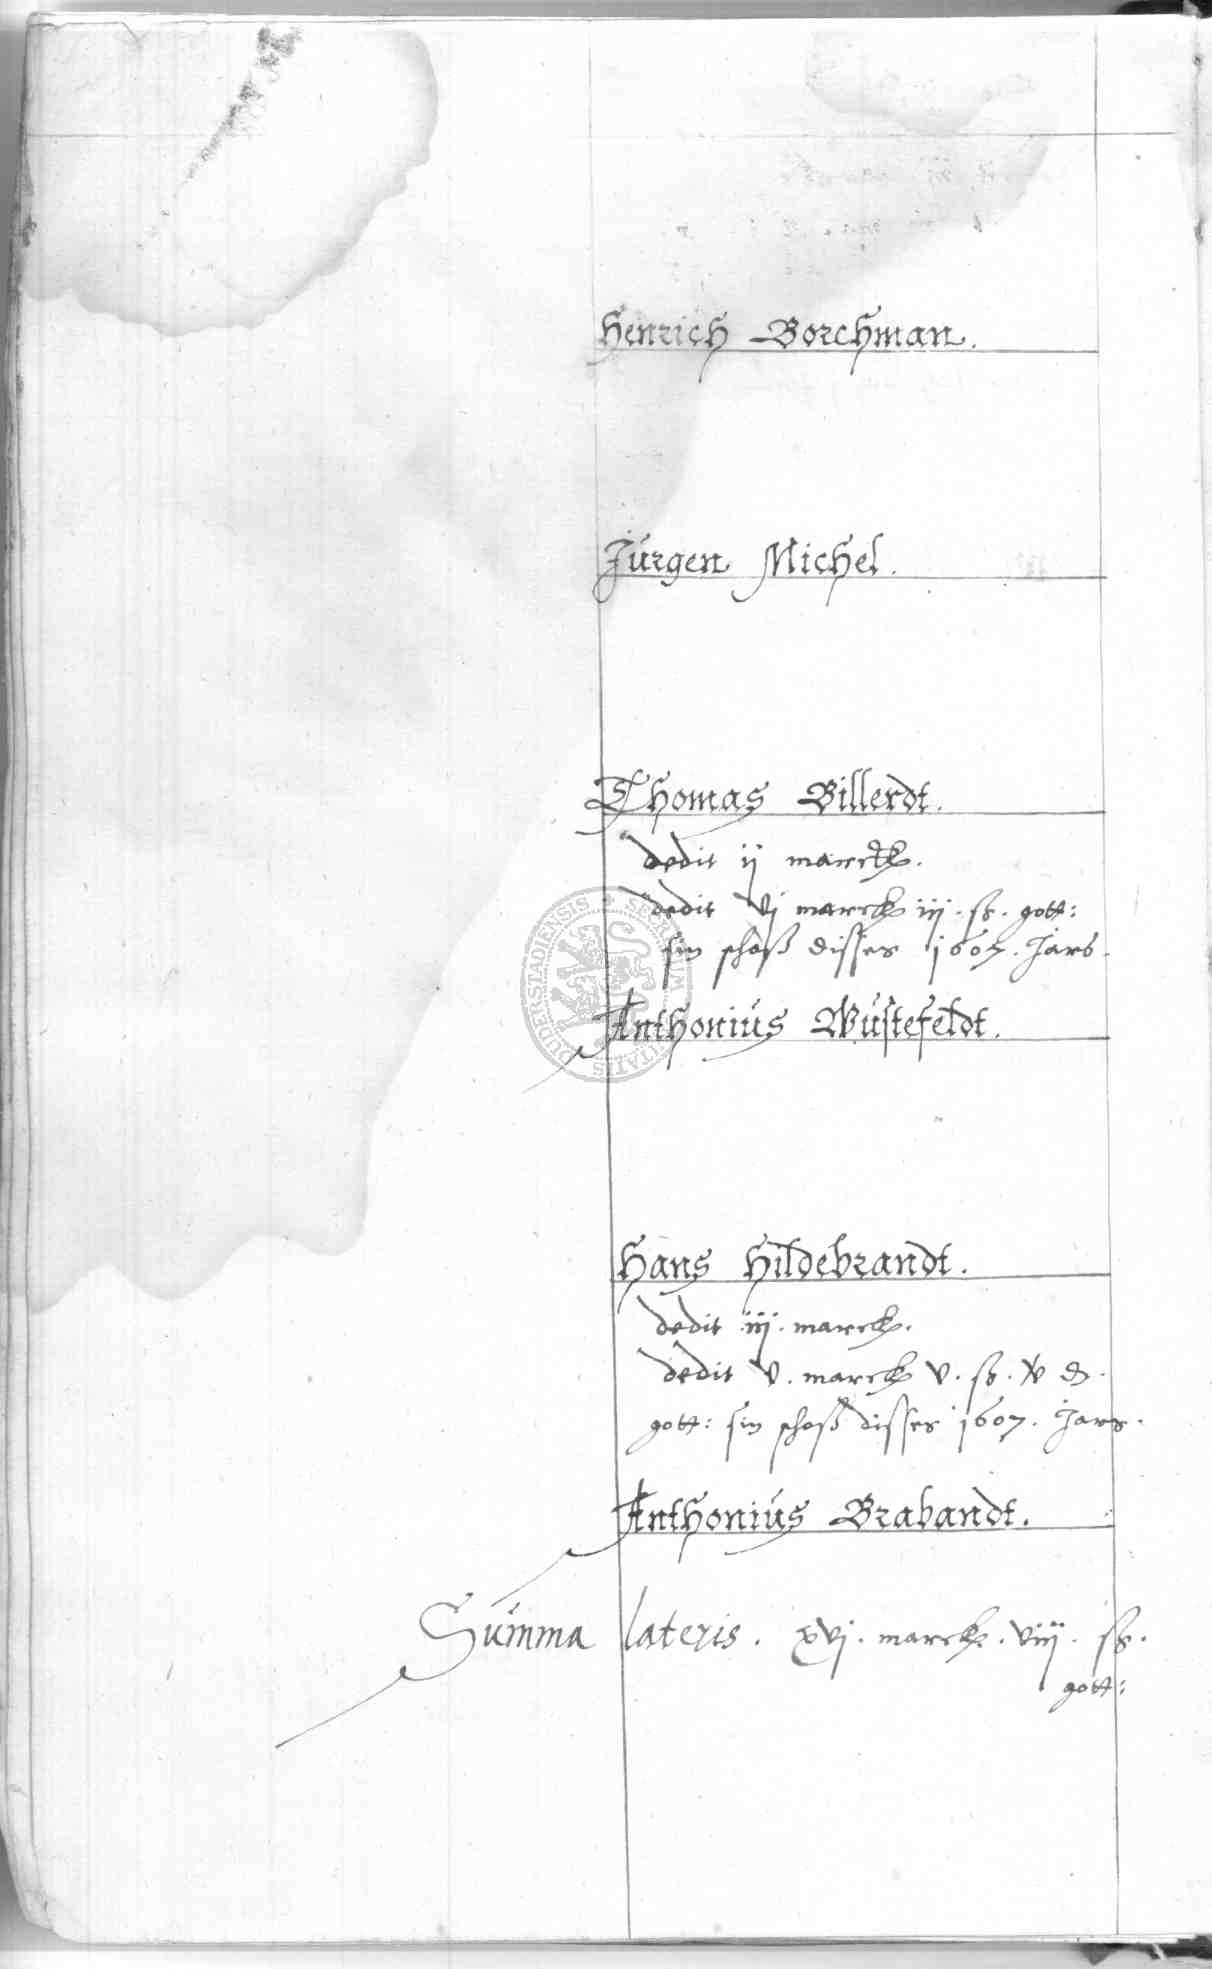 Henrich Borchman.
Jürgen Michel.
Thomas Billerdt.
dedit ij marck.
dedit vj marck iij. ß. gott:
sin schoß disses 1607. Jars.
Anthonius Wüstefeldt.
Hans Hildebrandt.
dedit iij. marck.
dedit v. marck v. ß.
gott: sin schoß disses 1607. Jars.
Anthonius Brabandt.
Summa lateris. xvj. marck. viij. ß.
gott:
SECRETUM CIVITATIS DUDERSTADIENSIS